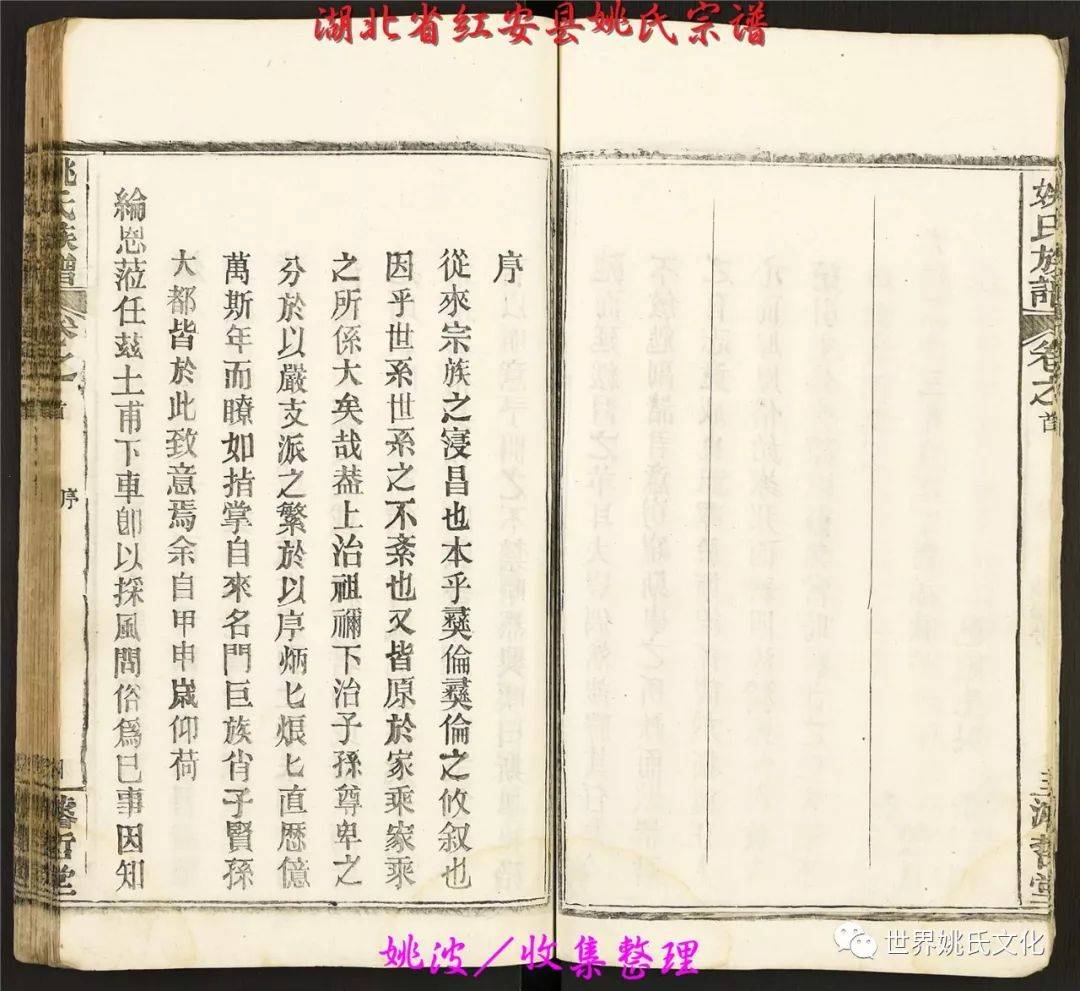 湖北省红安县姚氏宗谱
序
從來宗族之寖昌也本乎彝倫彝倫之攸叙也
因乎世系世系之不紊也又皆原於家乘家乘
之所係大矣哉葢上治祖禰下治子孫尊卑之
分於以嚴支派之繁於以序炳匕烺匕直歷億
萬斯年而瞭如指掌自來名門巨族肖子賢孫
大都皆於此致意焉余自甲申嵗仰荷
綸恩蒞任茲土甫下車卽以採風問俗爲巳事因知
姚氏族譜
卷之首
序
姚氏族譜
卷之首
姚波／收集整理
世界姚氏文化